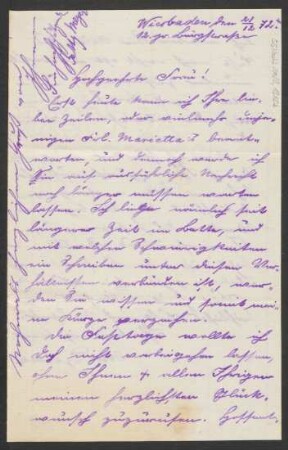 Wiesbaden, den 24/12 72.
12 gr. Burgstraße
Hochgeehrte Frau!
Erst heute kann ich Ihre lie-
ben Zeilen, oder vielmehr dieje-
nigen Frl. Marietta's beant-
worten, und dennoch werde ich
Sie mit ausführlicher Nachricht
noch länger müssen warten
lassen. Ich liege nämlich seit
längerer Zeit im Bette, und
mit welchen Schwierigkeiten
ein Schreiben unter diesen Ver-
hältnissen verbunden ist, wer-
den Sie wissen und somit mei-
ne Kürze verzeihen.
Die Festtage wollte ich
doch nicht vorbeigehen lassen,
ohne Ihnen & allen Ihrigen
meinen herzlichsten Glück-
wunsch zuzurufen. Hoffent-
Nochmals herzlichen Gruß